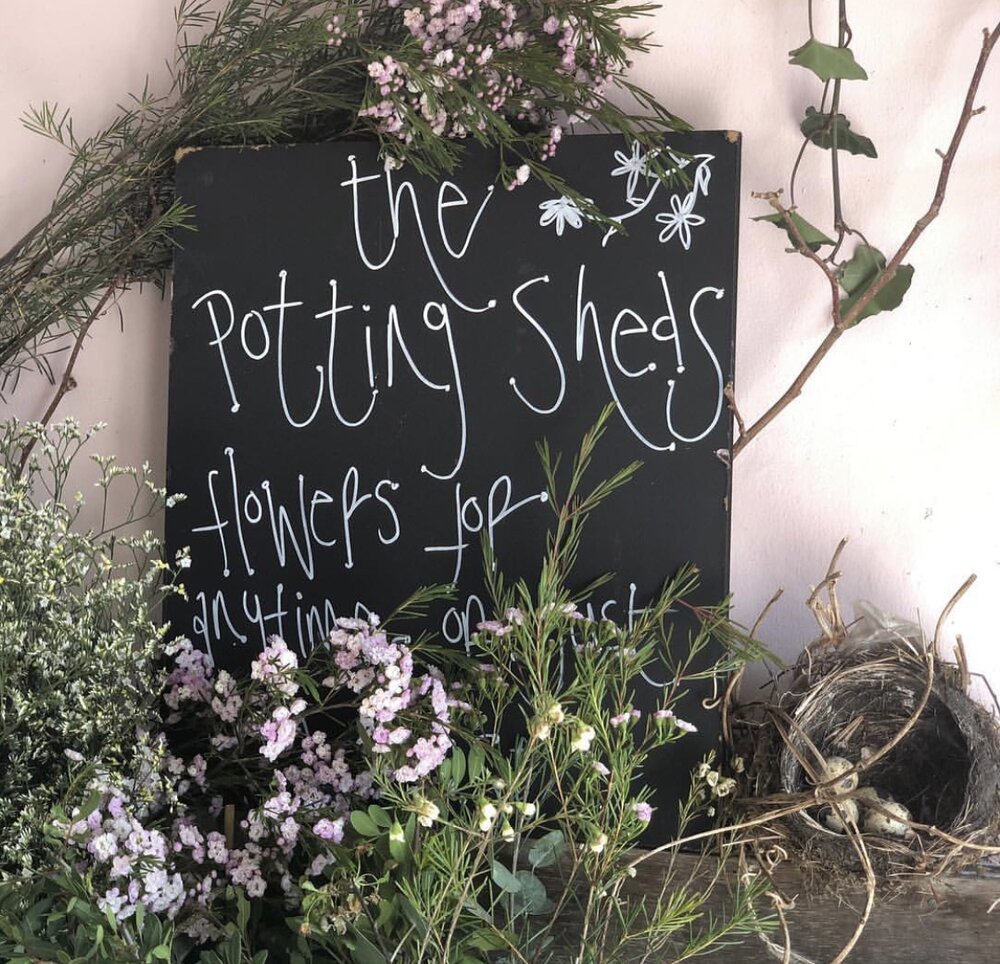 the
Potting Sheds
flowers for
anytime or just